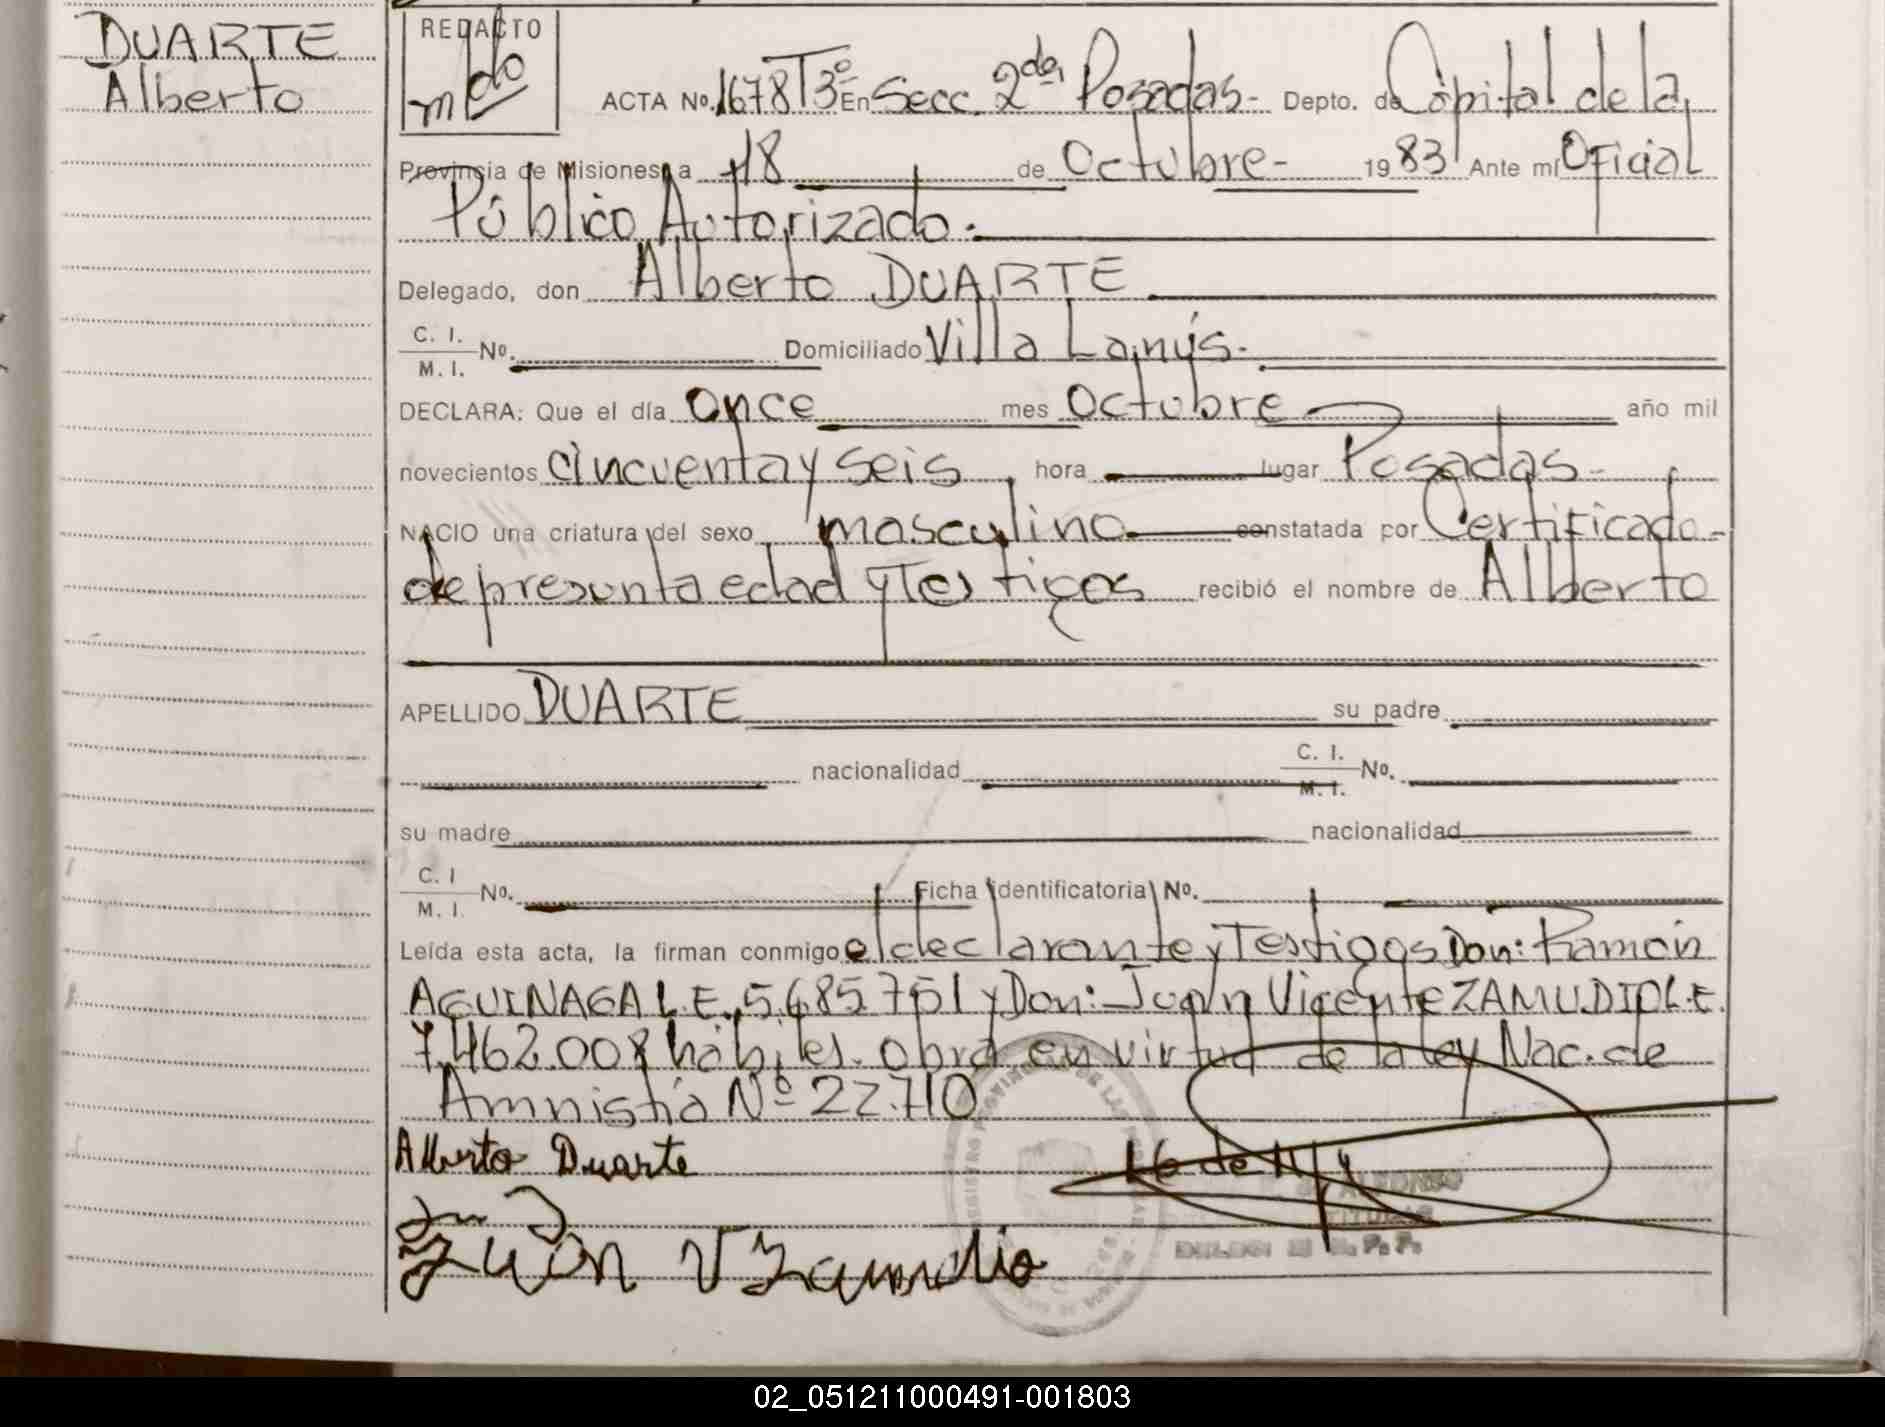 DUARTE
Alberto
REDACTO
mdo
ACTA No. 1678 T3º En Secc. 2da Posadas- Depto. de Capital de la
Provincia de Misiones, a 18 de Octubre- 1983 Ante mí Oficial
Público Autorizado.
Delegado, don Alberto DUARTE
C. I.
M. I. No. Domiciliado Villa Lanús.
DECLARA: Que el día once mes Octubre año mil
novecientos cincuenta y seis hora lugar Posadas-
NACIO una criatura del sexo masculino constatada por Certificado-
de presunta edad y Testigos recibió el nombre de Alberto
APELLIDO DUARTE su padre
nacionalidad C. I.
M. I. No.
su madre nacionalidad
C. I
M. I. No. Ficha identificatoria No.
Leída esta acta, la firman conmigo el declarante y Testigos Don: Ramón
AGUINAGA L.E. 5.685.751 y Don: Juan Vicente ZAMUDIO L.E.
7.462.008 hábiles. Obra en virtud de la ley Nac. de
Amnistía Nº 22.710
Alberto Duarte
Juan V Zamudio
TITULAR
02_051211000491-001803